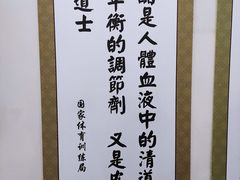 是人體血液中的清道
平衡的調節劑 又是
道士
国家体育训练局